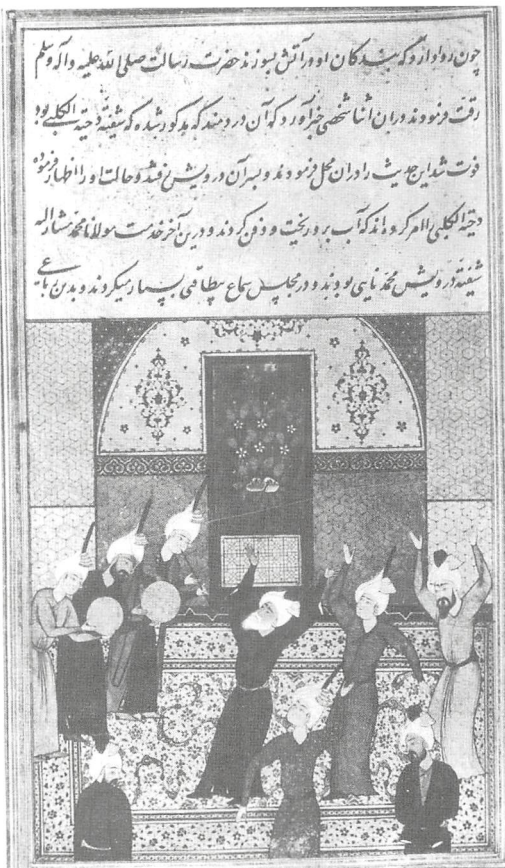 چون روا دارد که بندگان او در آتش بسوزند حضرت رسالت صلی الله علیه و آله وسلم
رقت فرمودند در آن اثنا شخصی خبر آورد که آن دردمند که مذکور شده که شیفتهٔ دحیة الکلبی بود
فوت شد این حدیث را در آن محل فرمودند و بسر آن درویش رفتند و حالت او را اظهار فرموده
دحیة الکلبی را امر کرده‌اند که آب برو ریخت و دفن کردند و درین آخر خدمت مولانا محمد مشار الیه
شیفتهٔ درویش محمد نایی بودند و در مجلس سماع بیطاقتی بسیار میکردند و بدین رباعی